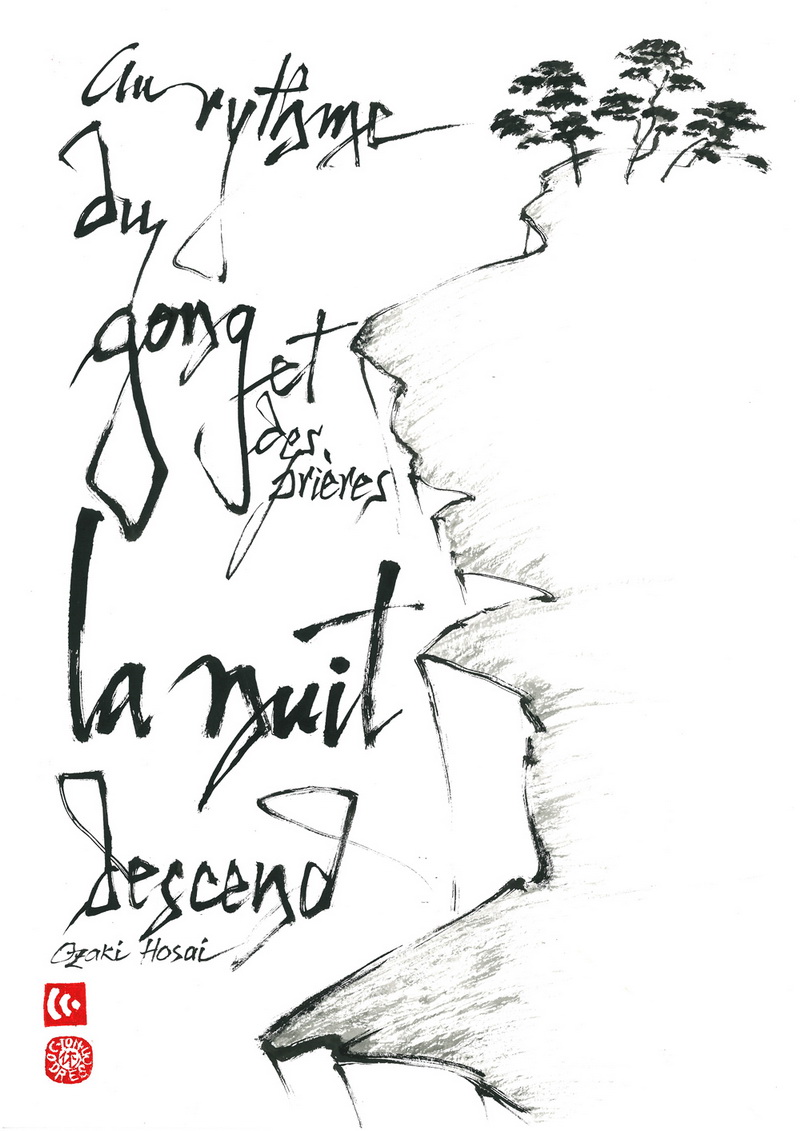 au rythme
du
gong et
des
prières
la nuit
descend
Ozaki Hosai